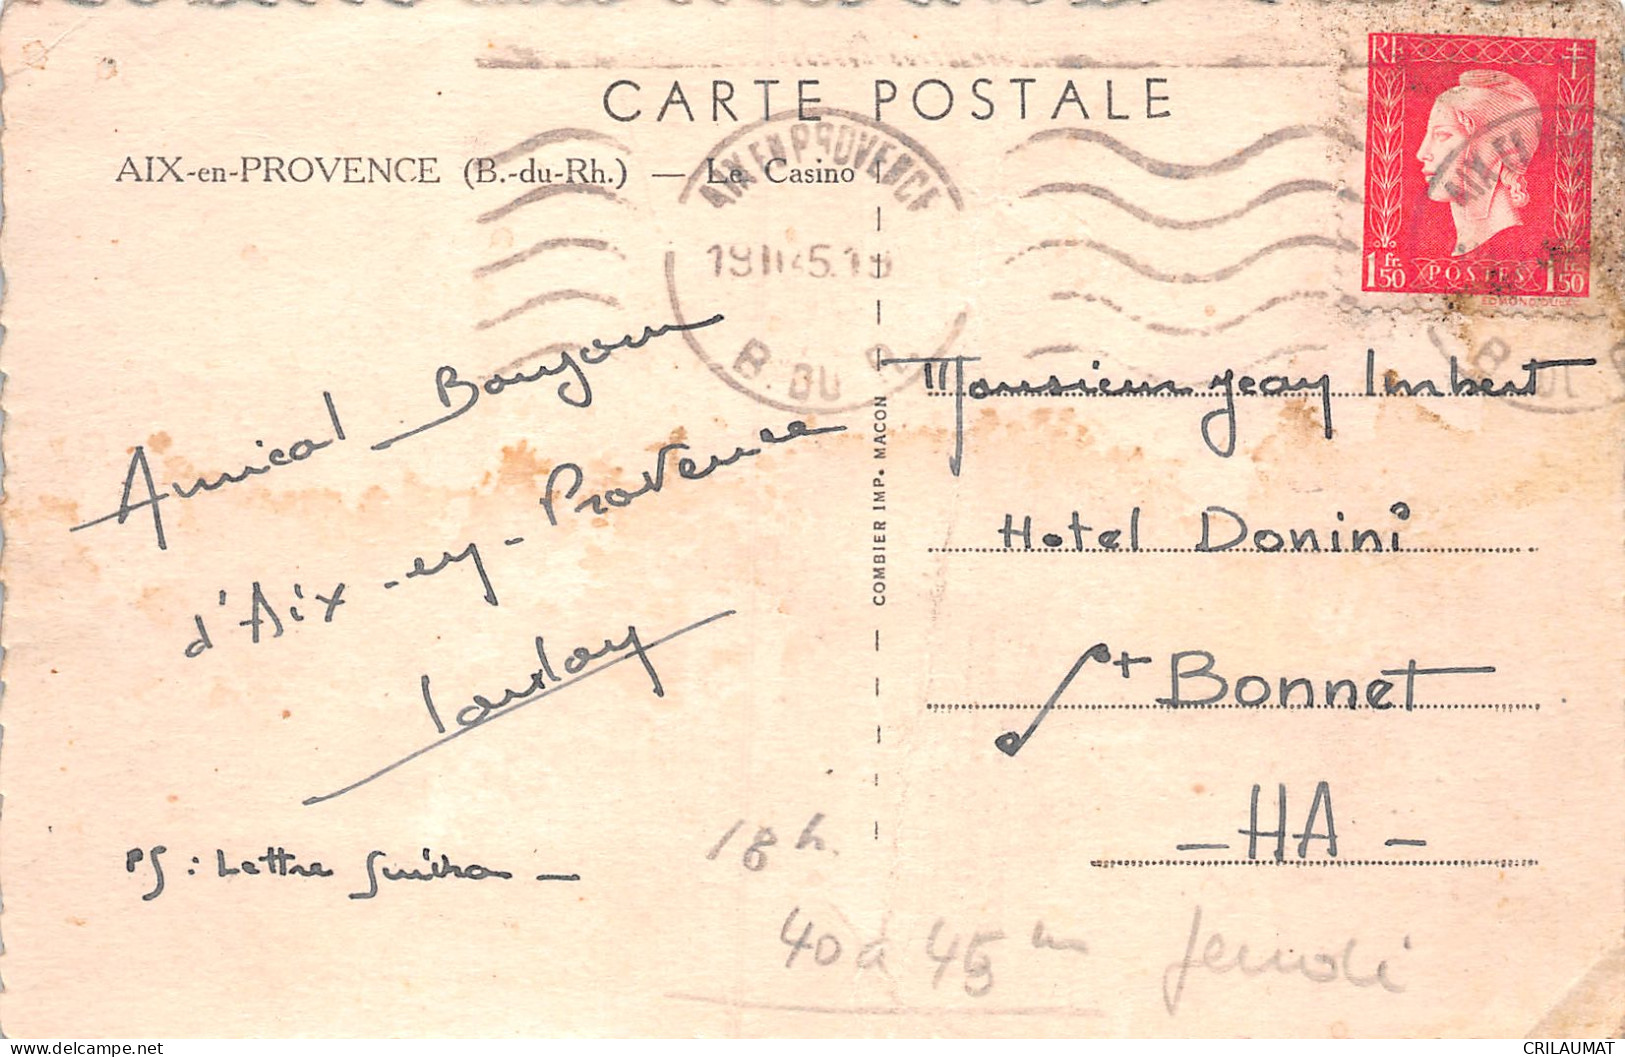 CARTE POSTALE
AIX-en-PROVENCE (B.-du-Rh.) — Le Casino
AIX EN PROVENCE
B. DU R.
RF
1 fr. 50 POSTES 1 fr. 50
Amical Bonjour
d'Aix-en-Provence
PS : Lettre suivra —
COMBIER IMP. MACON
Monsieur Jean Imbert
Hotel Donini
St Bonnet
— HA —
18 h.
40 à 45 m Jeudi
CRILAUMAT